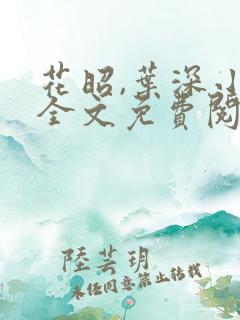 花昭,葉深小
全文免費閱
陸芸玥
未經同意禁止轉載